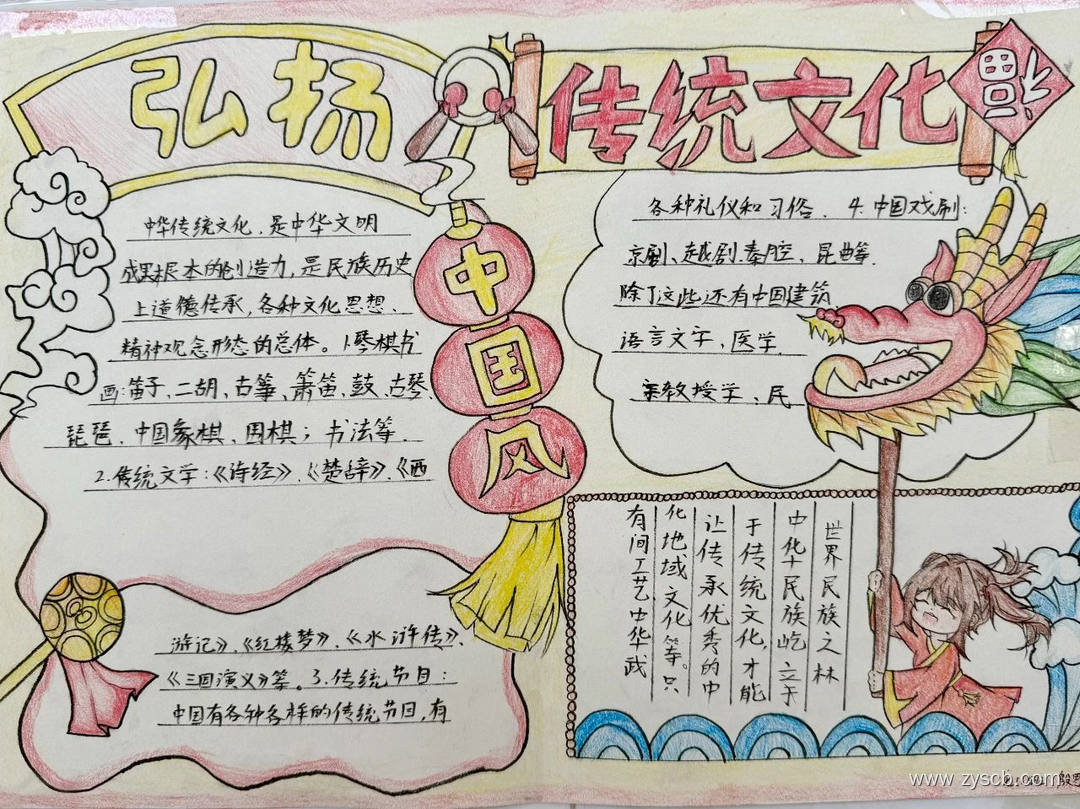 弘扬
传统文化
福
中国风
中华传统文化,是中华文明
成果根本的创造力,是民族历史
上道德传承,各种文化思想、
精神观念形态的总体。1.琴棋书
画:笛子、二胡、古筝、箫笛、鼓、古琴、
琵琶、中国象棋、围棋;书法等.
2.传统文学:《诗经》、《楚辞》、《西
游记》、《红楼梦》、《水浒传》、
《三国演义》等。3.传统节日:
中国有各种各样的传统节日,有
各种礼仪和习俗、4.中国戏剧:
京剧、越剧、秦腔、昆曲等.
除了这些还有中国建筑
语言文字、医学、
教授学、民
有间工艺中华武
化地域文化等。只
让传承优秀的中
于传统文化,才能
中华民族屹立于
世界民族之林
www.zyscb.com